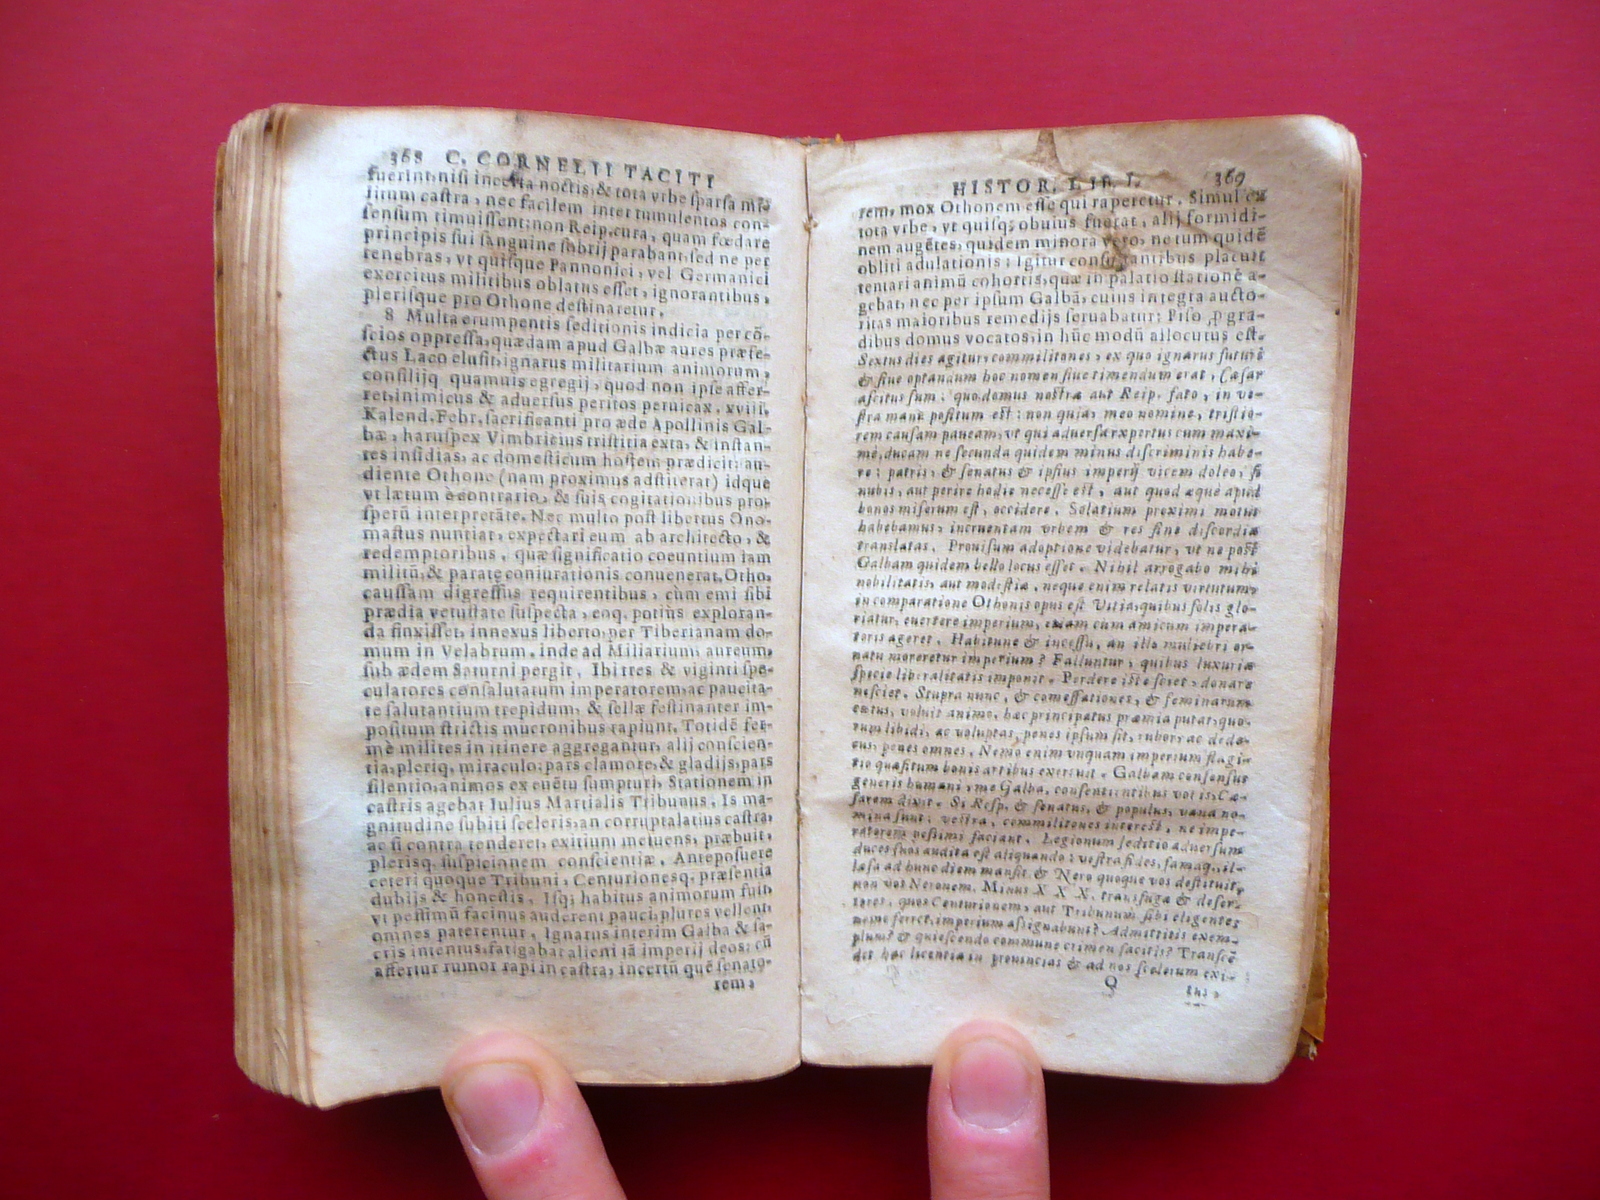 368 C. CORNELII TACITI
fuerint: nisi incerta noctis, & tota vrbe sparsa mi-
litum castra, nec facilem inter tumulentos con-
sensum timuissent: non Reip. cura, quam fœdare
principis sui sanguine sobrij parabant: sed ne per
tenebras, vt quisque Pannonici, vel Germanici
exercitus militibus oblatus esset, ignorantibus,
plerisque pro Othone destinaretur.
8 Multa erumpentis seditionis indicia per cō-
scios oppressa, quædam apud Galbæ aures præfe-
ctus Laco elusit, ignarus militarium animorum,
consilijq quamuis egregij, quod non ipse affer-
ret, inimicus & aduersus peritos peruicax. xviii.
Kalend. Febr. sacrificanti pro æde Apollinis Gal-
bæ, haruspex Vmbricius tristitia exta, & instan-
tes insidias, ac domesticum hostem prædicit: au-
diente Othone (nam proximus adstiterat) idque
vt lætum è contrario, & suis cogitationibus pro-
sperū interpretāte. Nec multo post libertus Ono-
mastus nuntiat, expectari eum ab architecto, &
redemptoribus, quæ significatio coeuntium iam
militū, & paratę coniurationis conuenerat. Otho,
caussam digressus requirentibus, cùm emi sibi
prædia vetustate suspecta, eoq. potiùs exploran-
da finxisset, innexus liberto, per Tiberianam do-
mum in Velabrum, inde ad Miliarium aureum,
sub ædem Saturni pergit. Ibi tres & viginti spe-
culatores consalutatum imperatorem, ac paucita-
te salutantium trepidum, & sellæ festinanter im-
positum strictis mucronibus rapiunt. Totidē fer-
mè milites in itinere aggregantur, alij conscien-
tia, pleriq, miraculo: pars clamore, & gladijs, pars
silentio, animos ex euētu sumpturi. Stationem in
castris agebat Iulius Martialis Tribunus. Is ma-
gnitudine subiti sceleris, an corrupta latius castra,
ac si contra tenderet, exitium metuens, præbuit,
plerisq. suspicionem conscientiæ. Anteposuere
ceteri quoque Tribuni, Centurionesq. præsentia
dubijs & honestis. Isq; habitus animorum fuit,
vt pessimū facinus auderent pauci, plures vellent,
omnes paterentur. Ignarus interim Galba & sa-
cris intentus, fatigabat alieni iā imperij deos: cū
affertur rumor rapi in castra, incertū quē senato-
rem,
HISTOR. LIB. I. 369
rem, mox Othonem esse qui raperetur. Simul ex
tota vrbe, vt quisq; obuius fuerat, alij formidi-
nem augētes, quidem minora vero, ne tum quidē
obliti adulationis: Igitur consultantibus placuit
tentari animū cohortis, quæ in palatio stationē a-
gebat, nec per ipsum Galbā, cuius integra aucto-
ritas maioribus remedijs seruabatur: Piso, p gra-
dibus domus vocatos, in hūc modū allocutus est.
Sextus dies agitur, commilitones, ex quo ignarus futuri
& siue optandum hoc nomen siue timendum erat, Cæsar
ascitus sum: quo domus nostræ aut Reip. fato, in ve-
stra manu positum est: non quia, meo nomine, tristio-
rem causam paueam, vt qui aduersa expertus cum maxi-
mè, ducam ne secunda quidem minus discriminis habe-
re: patris, & senatus & ipsius imperij vicem doleo, si
nobis, aut perire hodie necesse est, aut quod æquè apud
bonos miserum est, occidere. Solatium proximi motus
habebamus, incruentam vrbem & res sine discordia
translatas. Prouisum adoptione videbatur, vt ne post
Galbam quidem bello locus esset. Nihil arrogabo mihi
nobilitatis, aut modestiæ, neque enim relatis virtutum,
in comparatione Othonis opus est Vitia, quibus solis glo-
riatur, euertere imperium, etiam cum amicum impera-
toris ageret. Habitune & incessu, an illo muliebri or-
natu moreretur imperium? Falluntur, quibus luxuria
specie liberalitatis imponit. Perdere iste sciet, donare
nesciet. Stupra nunc, & comessationes, & feminarum
cœtus, voluit animo, hæc principatus præmia putat, quo-
rum libidi, ac voluptas, penes ipsum sit, rubor, ac dede-
cus, penes omnes. Nemo enim vnquam imperium flagi-
tio quæsitum bonis artibus exercuit. Galbam consensus
generis humani, me Galba, consentientibus vobis, Cæ-
sarem dixit. Si Resp. & senatus, & populus, vana no-
mina sunt: vestra, commilitones interest, ne impe-
ratorem pessimi faciant. Legionum seditio aduersum
duces suos audita est aliquando: vestra fides, famaq. il-
læsa ad hunc diem mansit. & Nero quoque vos destituit,
non vos Neronem. Minus XXX. transfugæ & deser-
tores, quos Centurionem, aut Tribunum sibi eligentes
nemo ferret, imperium assignabunt? Admittitis exem-
plum? & quiescendo commune crimen facitis? Transcē
det hæc licentia in prouincias & ad nos scelerum exi-
Q